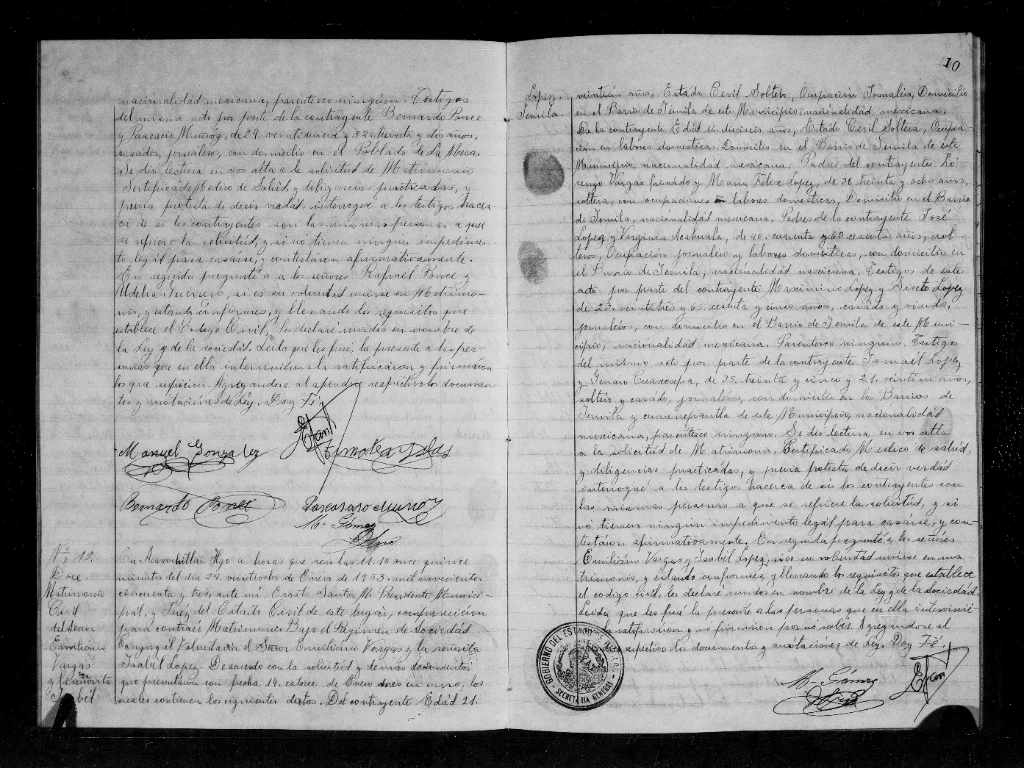 nacionalidad mexicana, parentesco ninguno. Testigos
del mismo acto por parte de la contrayente Bernardo Ponce
y Pascasio Muñoz, de 29 veintinueve y 32 treinta y dos años,
casados, jornaleros, con domicilio en el Poblado de La Mesa.
Se dio lectura en vos alta a la solicitud de Matrimonio
Sertificado Medico de Salud y diligencias practicadas, y
previa protesta de decir verdad, interrogué a los testigos hacerca
de si los contrayentes son las mismas personas a que
se refiere la solicitud, y si no tienen ningun impedimen-
to legal para casarse, y contestaron afirmativamente.
En seguida pregunté a los señores Rafael Ponce y
si es su voluntad unirse en Matrimo-
nio, y estando conformes, y llenando los requisitos que
establece el Codigo Civil, los declaré unidos en nombre de
la Ley y de la sociedad. Leida que les fué, la presente a las per-
sonas que en ella intervinieron la ratificaron y firmaron
los que supieron Agregandose al apendice respectivo los documen-
tos y anotaciones de Ley. Doy Fé.
Manuel Gonzalez
Bernardo Ponce
Pascasio Muñoz
M. Gómez
Nº 12.
Doce
Matrimonio
Civil
del Señor
Emiliano
Vargas
y la señorita
Isabel
En Acaxochitlan Hgo a horas que son las 11.15 once quince
minutos del dia 28 veintiocho de Enero de 1953 mil novecientos
cincuenta y tres, ante mi Erasto Santos M. Presidente Munici-
pal, y Juez del Estado Civil de este lugar, comparecieron
para contraer Matrimonio Bajo el Régimen de Sociedad
Conyugal Voluntaria el Señor Emiliano Vargas y la señorita
Isabel Lopez. De acuerdo con la solicitud y demás documentos
que presentaron con fecha 14 catorce de Enero en curso, los
cuales contienen los siguientes datos. Del contrayente Edad 21.
10
Lopez.
Tenuila.
veintiun años. Estado Civil Soltero, Ocupación Jornalero, Domicilio
en el Barrio de Tenuila de este Municipio, nacionalidad mexicana.
De la contrayente Edad 16 dieciseis años, Estado Civil Soltera, Ocupa-
ción en labores domestica. Domicilio en el Barrio de Tenuila de este
Municipio, nacionalidad mexicana. Padres del contrayente Lo-
renzo Vargas finado y Maria Felix Lopez, de 38 treinta y ocho años,
soltera, con ocupaciones en labores domesticas, Domicilio en el Barrio
de Tenuila, nacionalidad mexicana. Padres de la contrayente José
Lopez y Virginia de 40. cuarenta y 60 sesenta años, sol-
teros, Ocupación jornalero y labores domésticas, con domicilio en
el Barrio de Tenuila, nacionalidad mexicana. Testigos de este
acto por parte del contrayente Maximino Lopez y Lopez
de 23. veintitres y 65 sesenta y cinco años, casado y viudo,
jornaleros, con domicilio en el Barrio de Tenuila de este Muni-
cipio, nacionalidad mexicana. Parentesco ninguno. Testigos
del mismo acto por parte de la contrayente Ismael Lopez
y Genaro de 35. treinta y cinco y 21. veintiun años,
soltero y casado, jornaleros, con domicilio en los Barrios de
Tenuila y de este Municipio, nacionalidad
mexicana, parentesco ninguno. Se dio lectura en vos alta
a la solicitud de Matrimonio, Certificado Medico de salud,
y diligencias practicadas, y previa protesta de decir verdad
interrogué a los testigos hacerca de si los contrayentes son
las mismas personas a que se refiere la solicitud, y si
no tienen ningún impedimento legal para casarse, y con-
testaron afirmativamente. En seguida pregunté a los señores
Emiliano Vargas y Isabel Lopez, si es su voluntad unirse en ma-
trimonio, y estando conformes, y llenando los requisitos que establece
el codigo civil, les declaré unidos en nombre de la Ley y de la sociedad
Leida que les fué la presente a las personas que en ella intervinie-
ratificaron y no firmaron por no saber. Agregandose al
respectivo los documentos y anotaciones de Ley. Doy Fé.
GOBIERNO DEL ESTADO
SECRETARIA GENERAL
M. Gómez